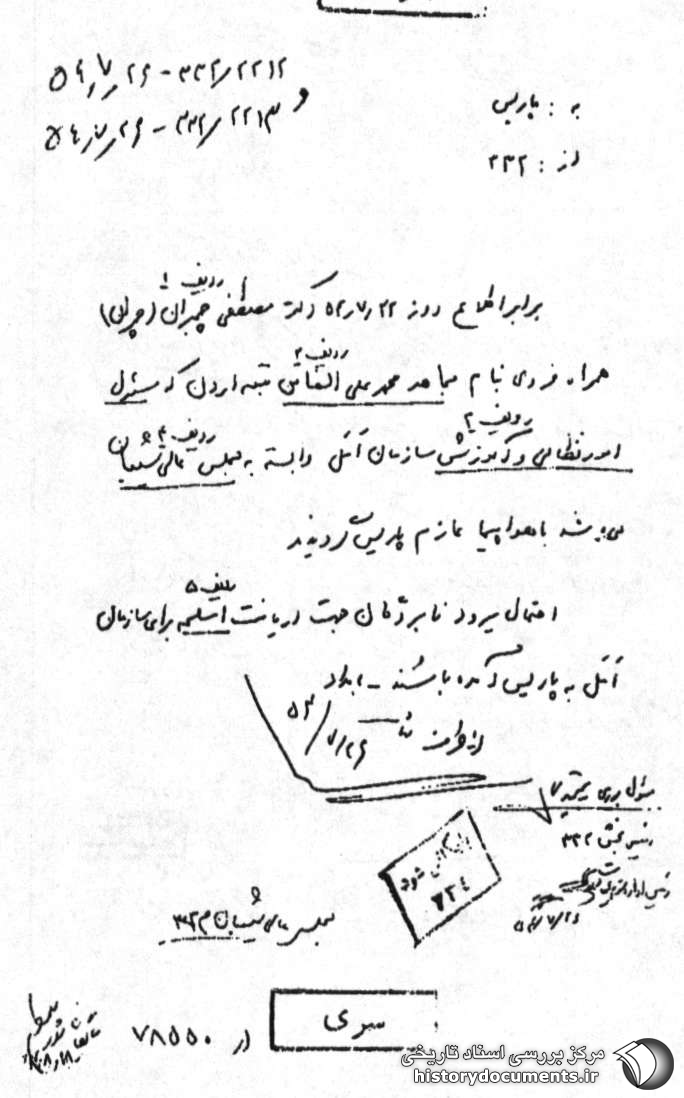 ۳۳۲/۲۲۱۲ - ۵۴/۷/۲۶
و
۳۳۲/۲۲۱۳ - ۵۴/۷/۲۶
به : پاریس
از : ۲۳۲
ردیف ۱
برابر اطلاع روز ۵۴/۷/۲۲ دکتر مصطفی چمران (چمران)
ردیف ۲
همراه فردی بنام مجاهد محمد علی تبعه اردن که مسئول
ردیف ۳ ردیف ۴
امور نظامی و آموزش سازمان أمل وابسته به مجلس عالی شیعیان
می باشد با هواپیما عازم پاریس گردیدند
ردیف ۵
احتمال میرود نامبردگان جهت دریافت اسلحه برای سازمان
أمل به پاریس آمده باشند -
از طرف
۵۴/۷/۲۶
مسئول بررسی
رئیس بخش ۳۳۲
رئیس اداره
۵۴/۷/۲۶
بایگانی شود
مجلس عالی شیعیان
سری
در ۷۸۵۵۰
مرکز بررسی اسناد تاریخی
historydocuments.ir